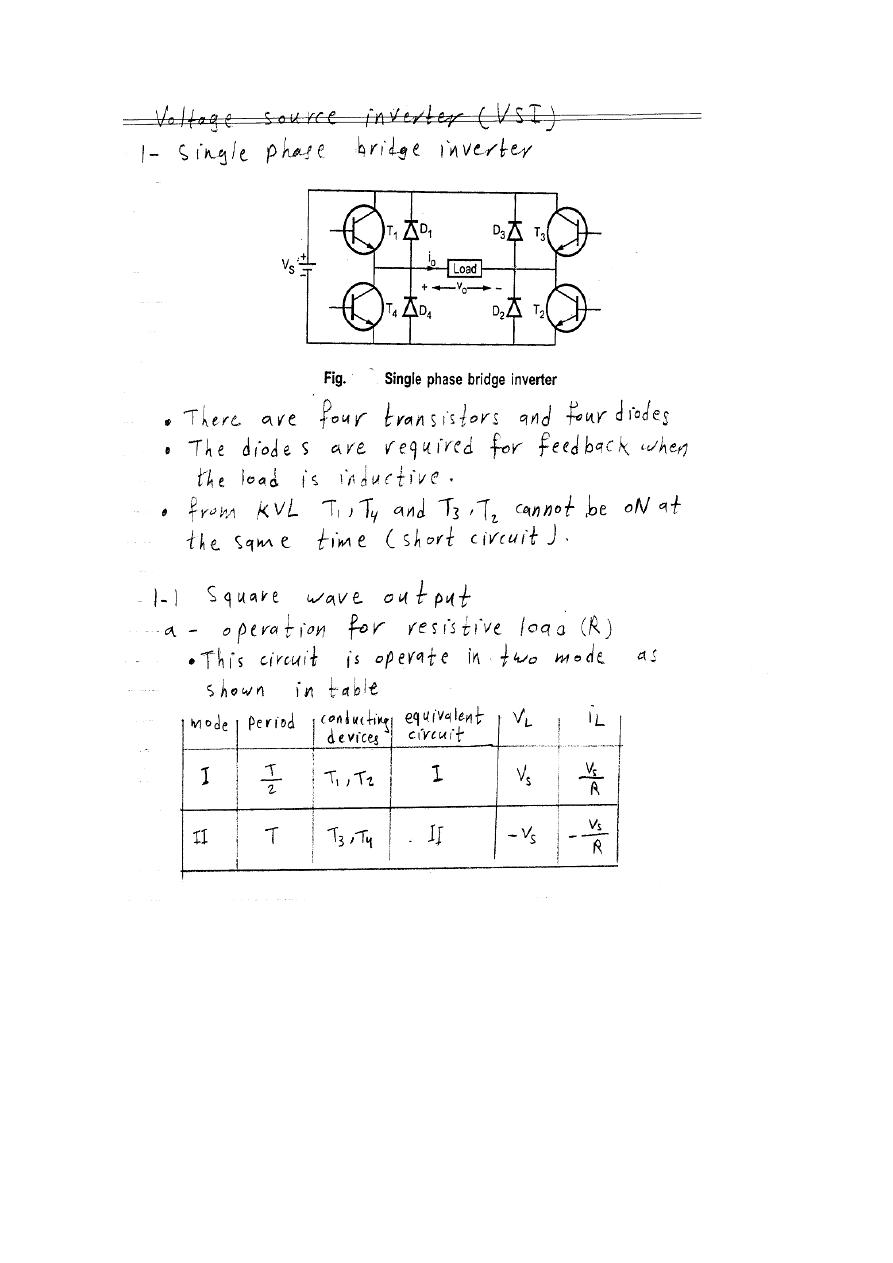 Voltage source inverter (VSI)
1- Single phase bridge inverter
T1 D1 D3 T3
Vs + - io Load
+ vo -
T4 D4 D2 T2
Fig. Single phase bridge inverter
• There are four transistors and four diodes
• The diodes are required for feedback when
the load is inductive.
• from KVL T1, T4 and T3, T2 cannot be oN at
the same time (short circuit).
1-1 Square wave output
a - operation for resistive load (R)
• This circuit is operate in two mode as
shown in table
mode period conducting devices equivalent circuit VL iL
I T/2 T1, T2 I Vs Vs/R
II T T3, T4 II -Vs -Vs/R